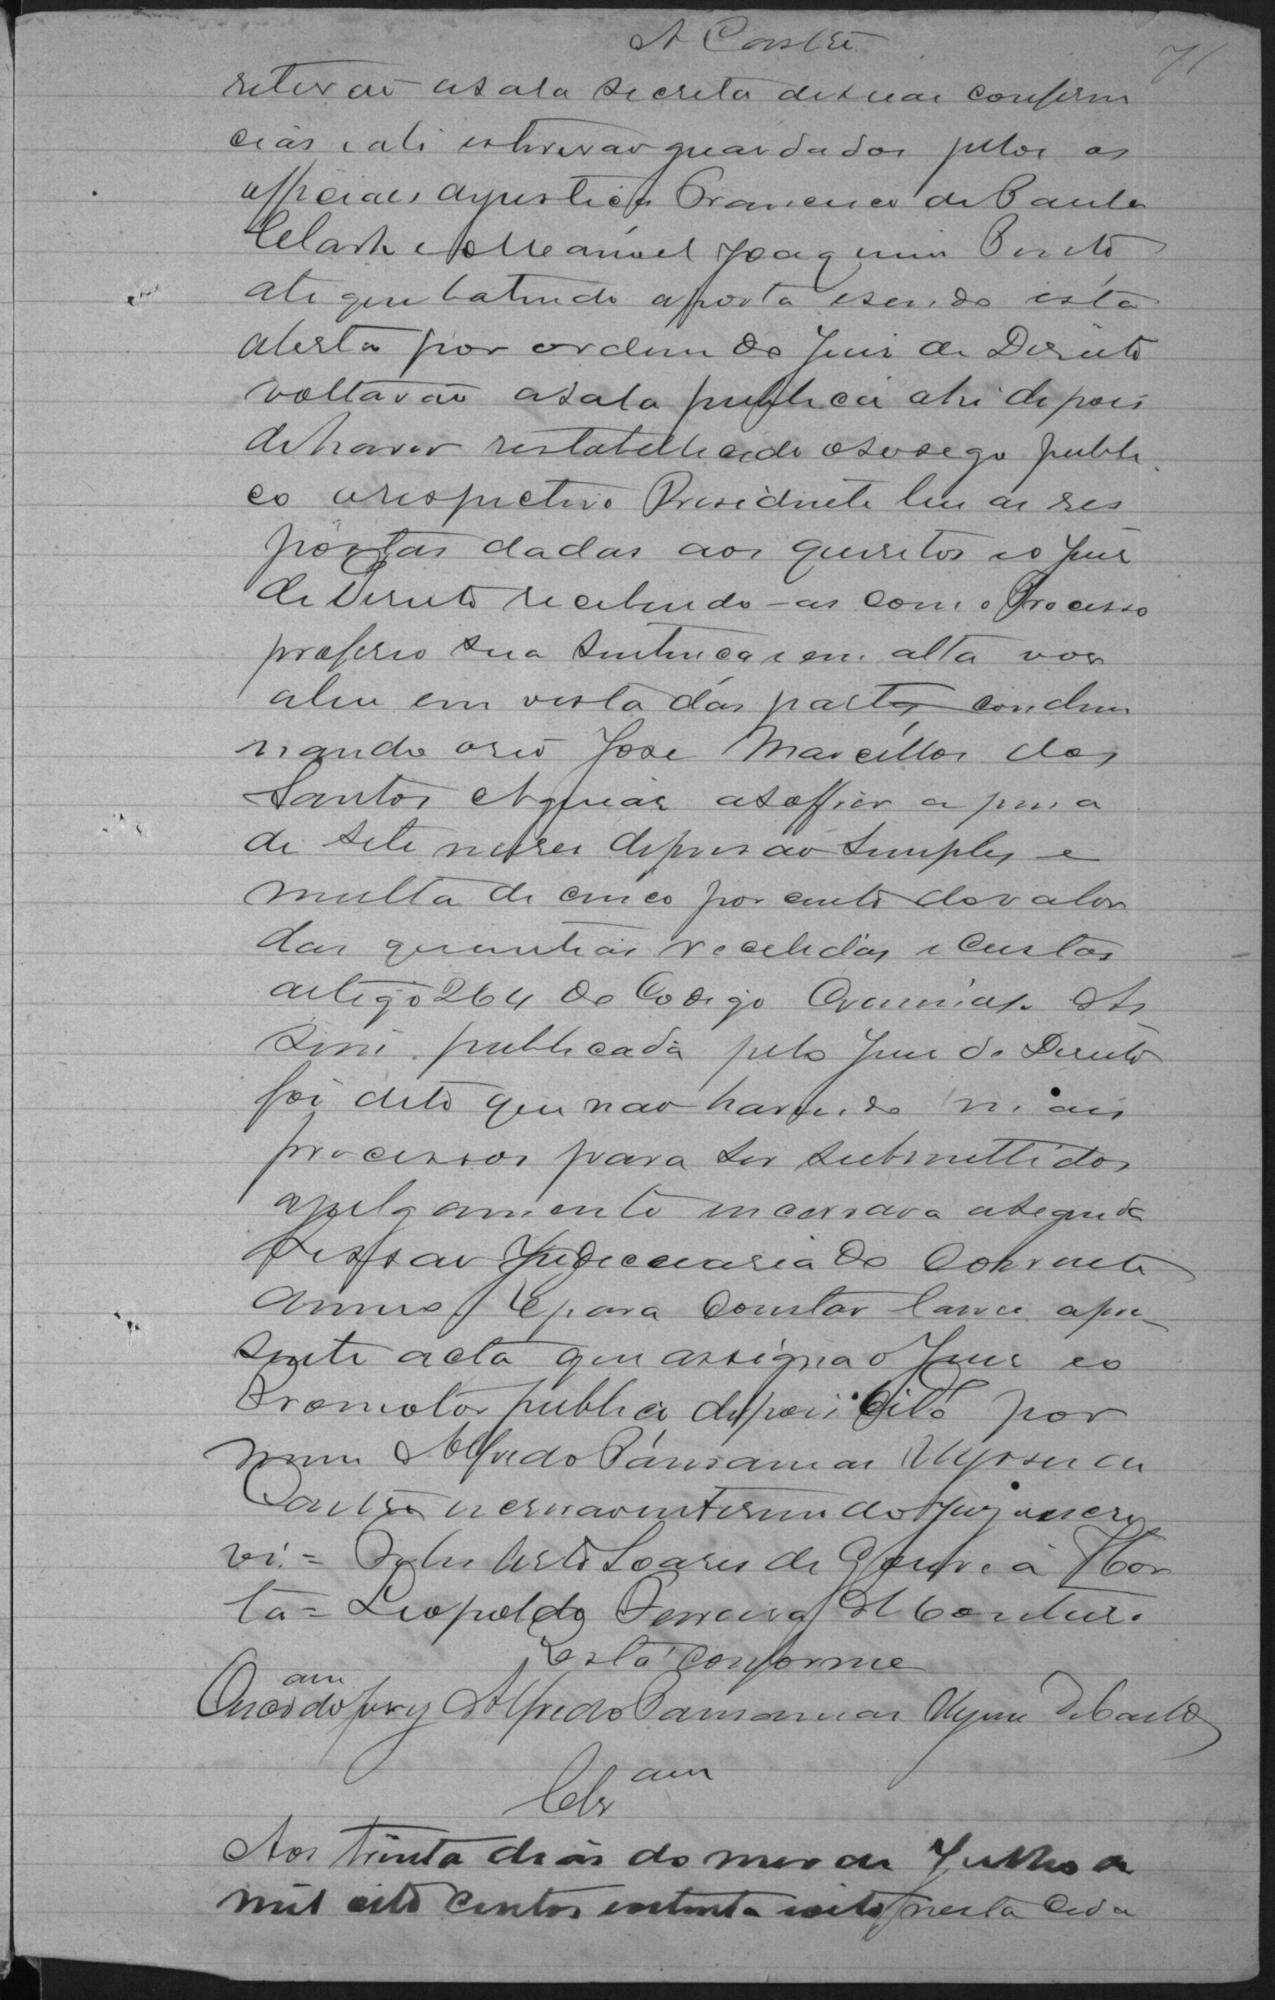 A Castro
71
retirarão asala secreta desuas conferen
cias e ali estiverão guardados pelos os
officiaes dejustiça Francisco de Paula
e Manoel Joaquim
ate que batendo aporta esendo esta
aberta por ordem do Juis de Direito
voltarão asala publica ahi depois
dehaver restabellecido osocego publi
co orespectivo Presidente leu as res
postas dadas aos quesitos eo Juis
de Direito recebendo-as com o Processo
proferio sua sentença e em alta vos
aleu em vista das partes condem
nando oreo Jose Marcellos dos
Santos Aguiar asoffrer a pena
de sete meses deprisão simples e
multa de cinco por cento dovalor
das quantias recebidas e Custas
artigo 264 do Codigo Criminal. As
sim publicada pelo Juis de Direito
foi dito que nao havendo mais
processos para ser submettidos
ajulgamento encerrava asegunda
Sessao Judiciaria do Corrente
Anno. E para Constar lavrei apre
sente acta que assigna o Juis eo
Promotor publico depois lida por
mim Alfredo
Castro escrivao interino do Jury aescre
vi. = Soares de Gouveia Hor
ta = Leopoldo Ferreira Monteiro
Está Conforme
Oescram do Jury Alfredo de Castro
Clsam
Aos trinta dias do mes de Julho de
mil oito centos esetenta eoito nesta Cida